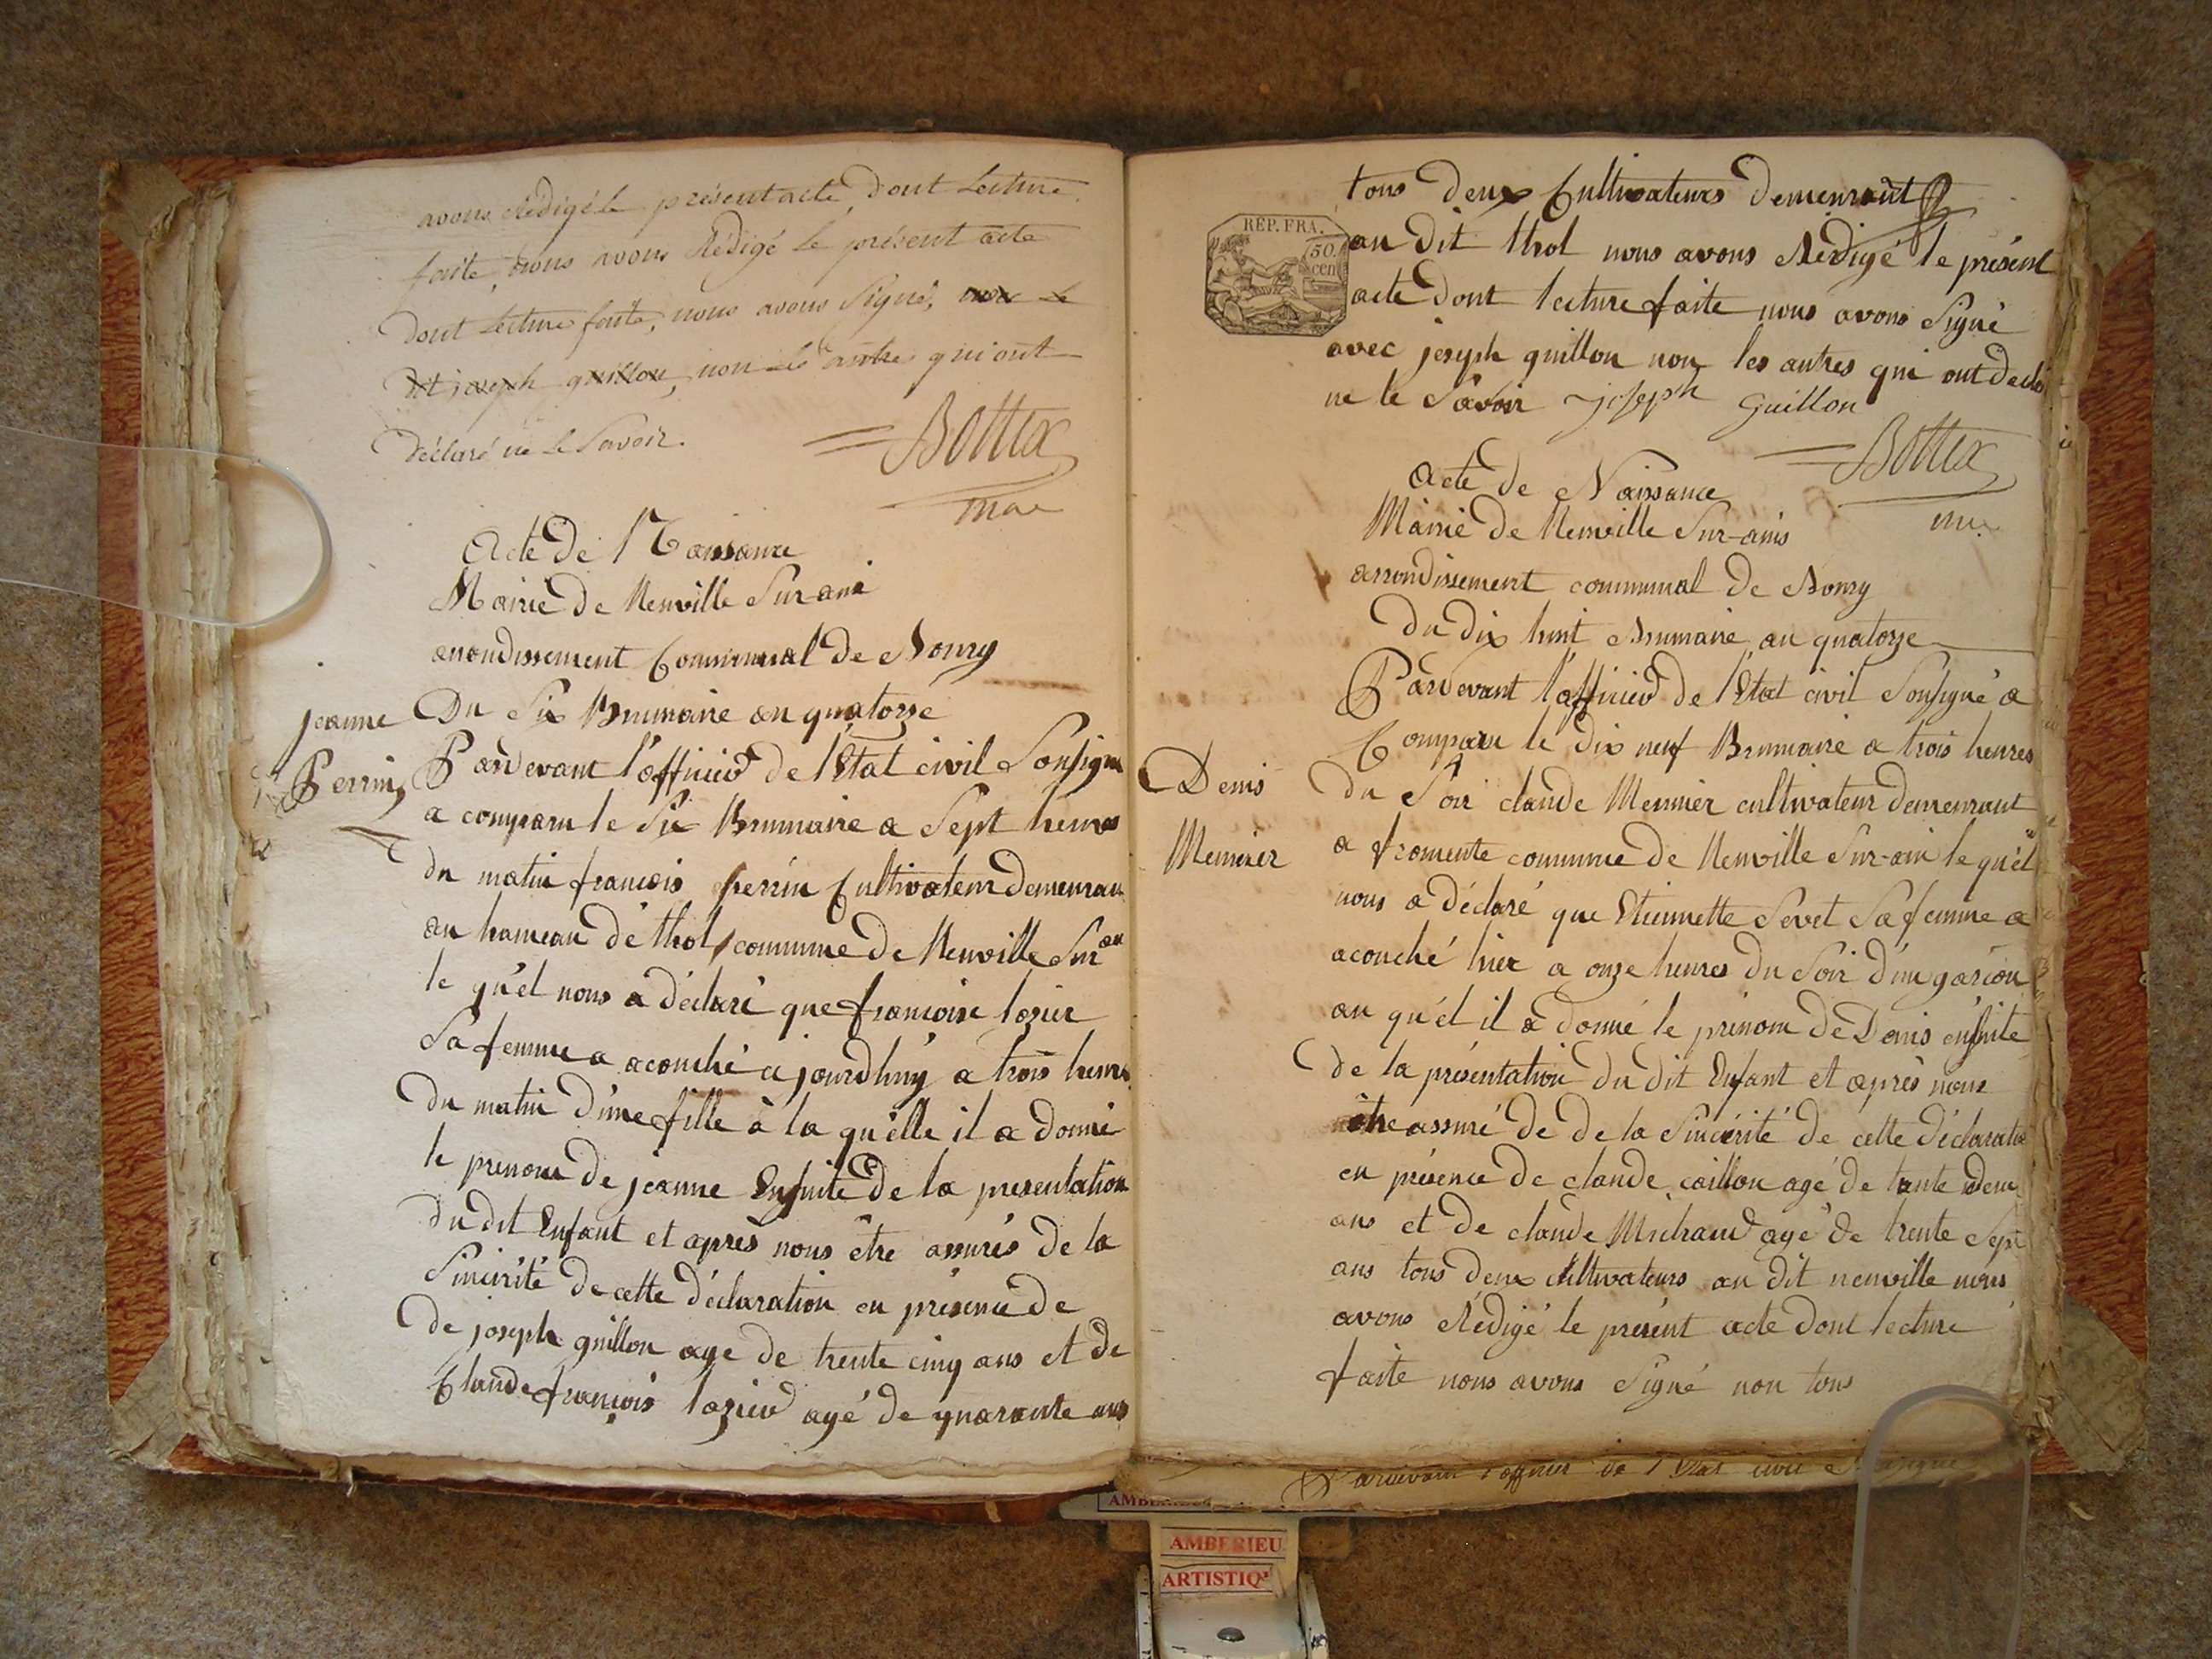 avons Rédigé le présent acte, dont Lecture
faite, nous avons Rédigé le présent acte
dont Lecture faite, nous avons Signé, avec le
dit joseph guillon, non le autre qui ont
déclaré ne le Savoir.
Bottex
mae
Acte de Naissance
Mairie de Neuville Sur ain
arrondissement Communal de Bourg
jeanne
Perrin
Du Six Brumaire an quatorze
Pardevant l'officier de l'Etat civil Sousigné
a comparu le Six Brumaire a Sept heures
du matin francois perrin Cultivateur demeuran
au hameau de thol commune de Neuville Sur ain
le qu'el nous a déclaré que francoise lozier
Sa femme a acouché ce jourdhuy a trois heures
du matin d'une fille à la qu'elle il a donné
le prenom de jeanne Ensuite de la presentation
du dit Enfant et après nous être assurés de la
Sincérité de cette déclaration en présence de
de joseph guillon age de trente cinq ans et de
Claude francois lozier agé de quarante ans
tous deux Cultivateurs demeurant
REP. FRA.
50.
cen
au dit thol nous avons Rédigé le présent
acte dont lecture faite nous avons Signé
avec joseph guillon non les autres qui ont déclé
ne le Savoir joseph Guillon
Bottex
Acte de Naissance
Mairie de Neuville Sur-ains
arrondissement communal de Bourg
Du dix huit Brumaire an quatorze
Denis
Meunier
Pardevant l'officier de l'Etat civil Sousigné a
Comparu le dix neuf Brumaire a trois heures
du Soir claude Meunier cultivateur demeurant
a fromente commune de Neuville Sur-ain le qu'el
nous a déclaré que Etiennette Sevet Sa femme a
acouché hier a onze heures du Soir d'un garcon
au qu'el il a donné le prénom de Denis ensuite
de la présentation du dit Enfant et après nous
être assuré de de la Sincérité de cette déclaratio
en présence de claude caillon agé de trente deux
ans et de claude Michaud agé de trente Sept
ans tous deux cultivateurs au dit neuville nous
avons Rédigé le présent acte dont lecture
faite nous avons Signé non tous
Pardevant l'officier de l'Etat civil Sousigné
AMBERIEU
ARTISTIQ